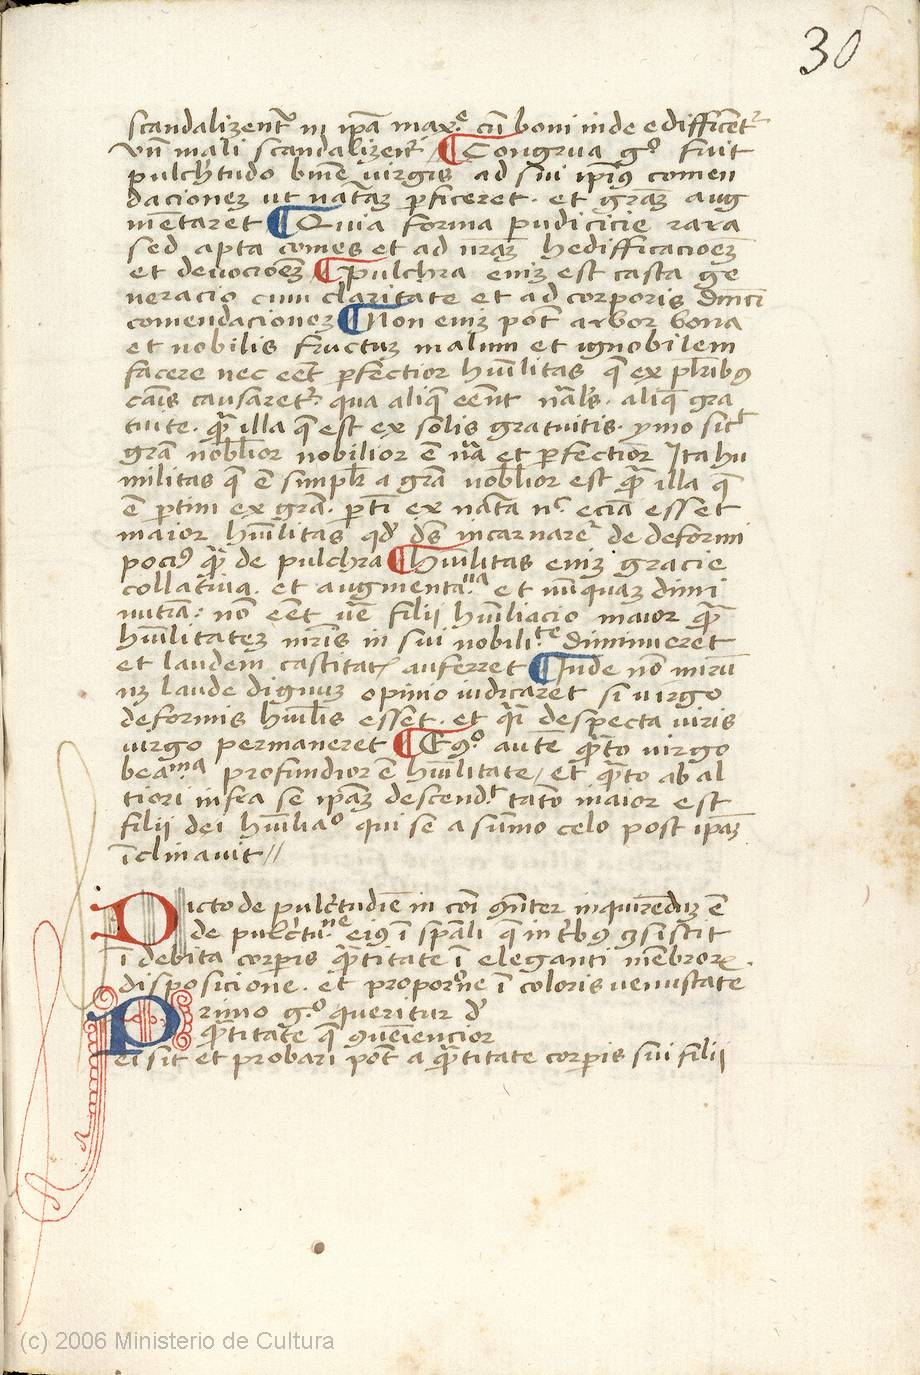 30
scandalizent᷑ in ip̄a max.ͤ cū boni inde edifficēt᷑
vn̄ mali scandalizent᷑ ¶ Congrua g.ͦ fuit
pulch᷑tudo bt̄e virgīs ad sui ip̄iꝰ comen
dacionez ut nat̄az ꝑficeret . et grāz aug
mētaret ¶ Quia forma pudicicie rara
sed apta comes et ad nr̄az hedifficacioēz
et deuocioēz ¶ pulchra eniz est casta ge
neracio cum claritate et ad corporis
comendacionez ¶ Non eniz pot̄ arbor bona
et nobilis fructuz malum et ignobilem
facere nec eēt ꝑfectior hūilitas q̄ ex pl᷑ribꝰ
cāis causaret᷑ . qua aliq̄ eēnt nāl᷑s . aliq̄ gra
tuite . q̄ꝫ illa q̄ est ex solis gratuitis . ymo sicᵗ
grā nob̄lior nobilior ē nā et ꝑfectior Ita hu
militas q̄ ē simpł᷑ a grā nob̄lior est q̄ꝫ illa q̄
ē ꝑtim ex grā . ꝑtī ex nāta n.ͨ eciā esset
maior hūilitas qd̓ dn̄s incarnaret᷑ de deformi
pociꝰ q̄ꝫ de pulchra ¶ hūilitas eniz gracie
collatiua . et augmentaᵘᵃ et nūquaz dimi
nutīa : nō eēt uē filij hūiliacio maior q̄ꝫ
hūilitatez mr̄is in sui nobiliᵗᵉ diminueret
et laudem castitat᷑ auferret ¶ Inde nō mirū
nz laude dignuz opinio iudicaret si virgo
deformis hūil᷑s esset . et q̄i despecta viris
virgo permaneret ¶ Eꝯ.ͦ autē q̄ꝫto virgo
beaᵐᵃ profundior ē hūilitate / et q̄ꝫto ab al
tiori infra se ip̄az descend.ᵗ tāto maior est
filij dei hūiliaͦ qui se a sūmo celo post ip̄az
īclinauit //
Dicto de pulc᷑tudīe in cōi ꝯn̄ter inquirēduz ē
de pulc᷑tu.ⁿᵉ eiꝰ ī spāli q̄ in t᷑bꝰ ꝯsistit
ī debita corꝑis q̄ꝫtitate ī eleganti mēbroꝝ .
disposicione . et propor.ⁿe ī coloris uenustate
Primo g.ͦ queritur d̓
q̄ꝫtitate q̄ ꝯueīencior
ei sit et probari pot̄ a q̄ꝫtitate corꝑis sui filij
(c) 2006 Ministerio de Cultura